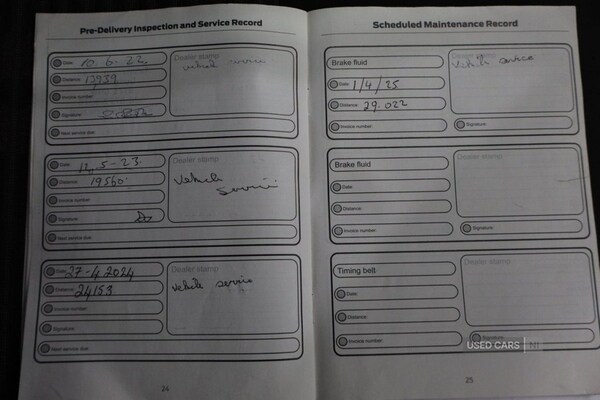 Pre-Delivery Inspection and Service Record
Date: 10.6.22
Dealer stamp
vehicle service
Distance: 13939
Invoice number:
Signature:
Next service due:
Date: 12.5-23.
Dealer stamp
Distance: 19560
Vehicle
Service
Invoice number:
Signature:
Next service due:
Date: 27-4.2024
Dealer stamp
Distance: 24153
vehicle service
Invoice number:
Signature:
Next service due:
24
Scheduled Maintenance Record
Brake fluid
Dealer stamp
Vehicle service
Date: 1/4/25
Distance: 29.022
Invoice number:
Signature:
Brake fluid
Dealer stamp
Date:
Distance:
Invoice number:
Signature:
Timing belt
Dealer stamp
Date:
Distance:
Invoice number:
Signature:
25
USED CARS NI